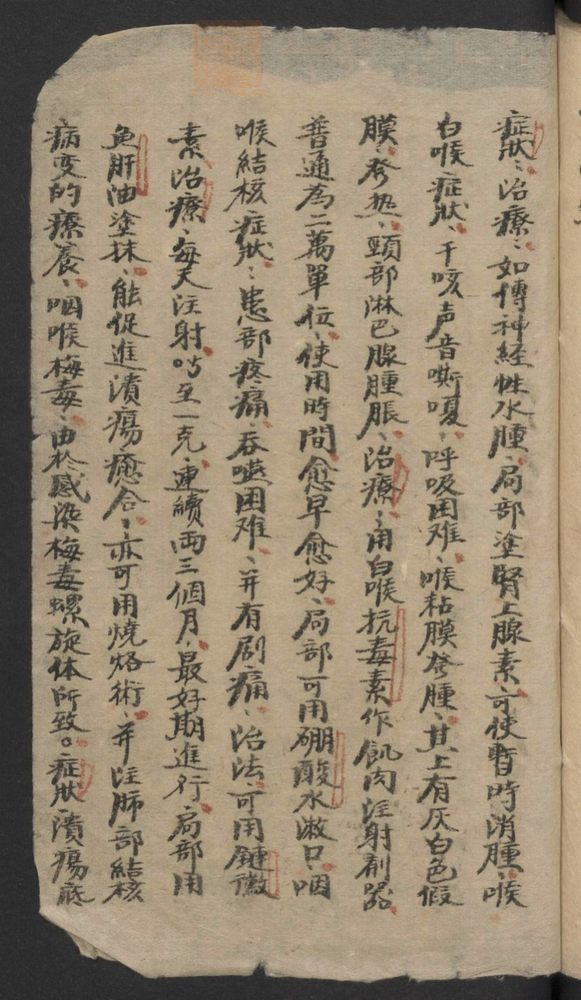 症狀、治療、如傅神経性水腫、局部塗腎上腺素、可使暫時消腫、喉
白喉症狀、干咳声音嘶嗄、呼吸困难、喉粘膜發腫、其上有灰白色假
膜、發热、頸部淋巴腺腫脹、治療、用白喉抗毒素作飢肉注射剤器
普通為二萬單位、使用時間愈早愈好、局部可用硼酸水漱口、咽
喉結核症狀、患部疼痛、吞嚥困难、并有剧痛、治法、可用鏈黴
素、治療、每天注射、至一克、連續両三個月、最好期進行、局部用
魚肝油塗抹、能促進潰瘍癒合、亦可用燒烙術、并注肺部結核
病变的療養、咽喉梅毒、由於感染梅毒螺旋体所致。症狀、潰瘍底